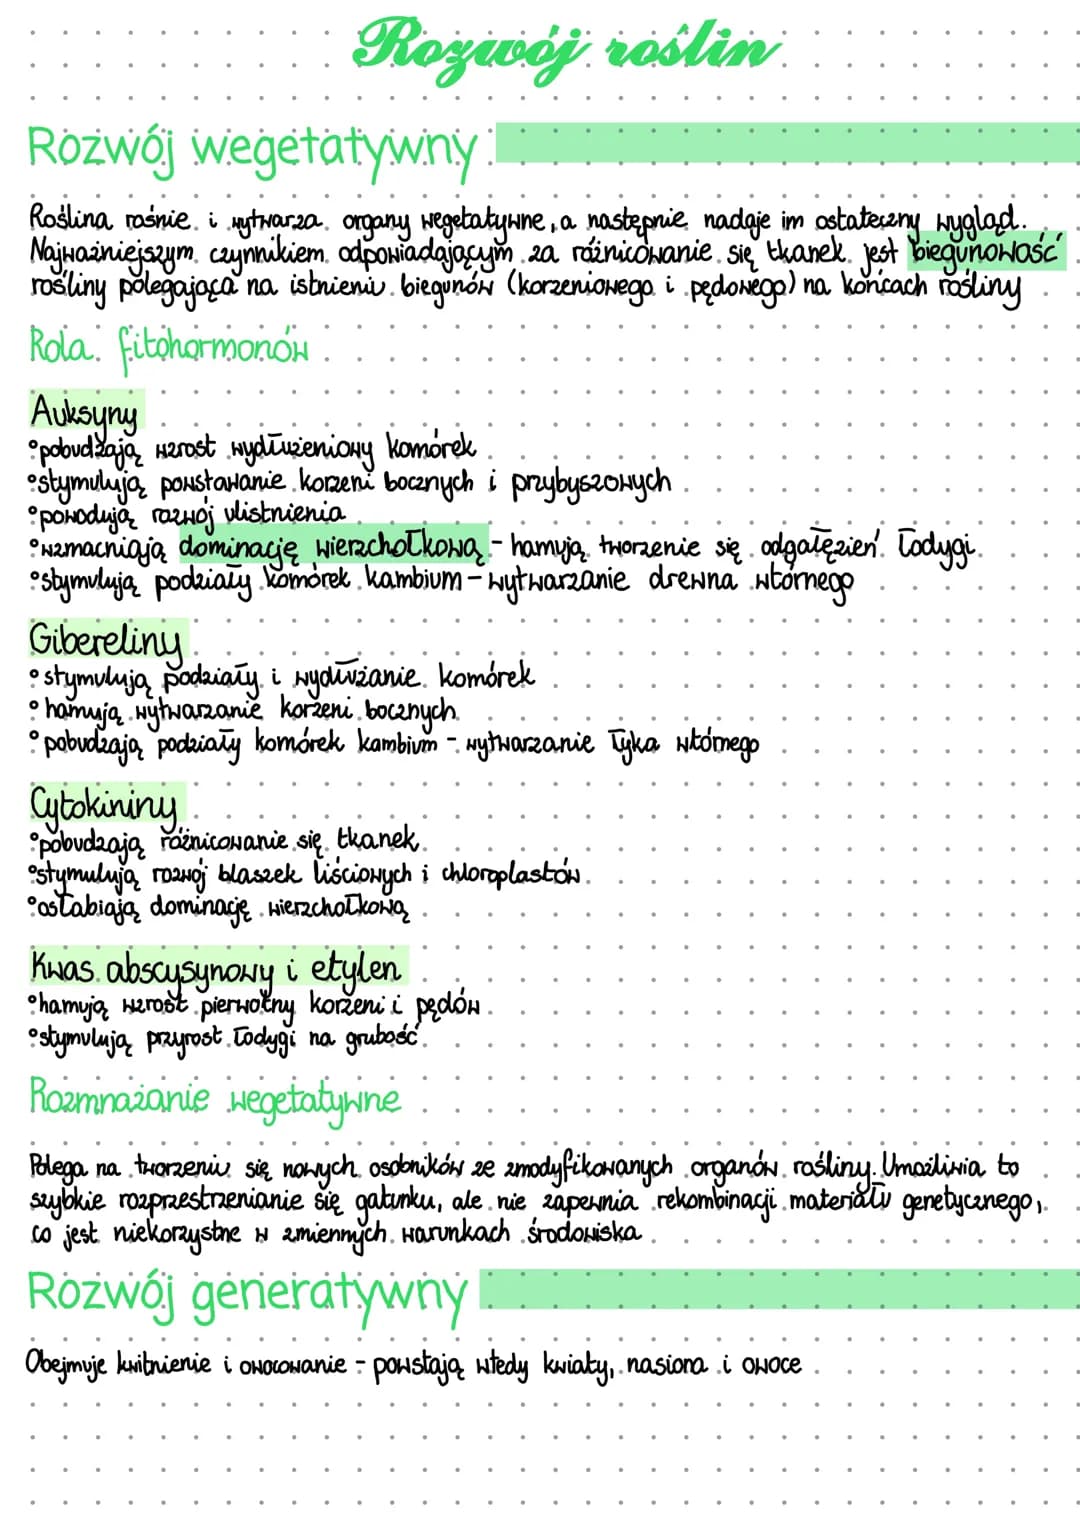 Rozwój roślin
Rozwój wegetatywny
Roślina rośnie i wytwarza organy wegetatywne, a następnie nadaje im ostateczny wygląd.
Najważniejszym czynnikiem odpowiadającym za różnicowanie się tkanek jest biegunowość
rośliny polegająca na istnieniu biegunów (korzeniowego i pędowego) na końcach rośliny
Rola fitohormonów
Auksyny
°pobudzają wzrost wydłużeniowy komórek
°stymulują powstawanie korzeni bocznych i przybyszowych
°powodują rozwój ulistnienia
°wzmacniają dominację wierzchołkową - hamują tworzenie się odgałęzień łodygi
°stymulują podziały komórek kambium - wytwarzanie drewna wtórnego
Gibereliny
°stymulują podziały i wydłużanie komórek
°hamują wytwarzanie korzeni bocznych
°pobudzają podziały komórek kambium - wytwarzanie łyka wtórnego
Cytokininy
°pobudzają różnicowanie się tkanek
°stymulują rozwój blaszek liściowych i chloroplastów
°osłabiają dominację wierzchołkową
Kwas abscysynowy i etylen
°hamują wzrost pierwotny korzeni i pędów
°stymulują przyrost łodygi na grubość
Rozmnażanie wegetatywne
Polega na tworzeniu się nowych osobników ze zmodyfikowanych organów rośliny. Umożliwia to
szybkie rozprzestrzenianie się gatunku, ale nie zapewnia rekombinacji materiału genetycznego,
co jest niekorzystne w zmiennych warunkach środowiska
Rozwój generatywny
Obejmuje kwitnienie i owocowanie - powstają wtedy kwiaty, nasiona i owoce